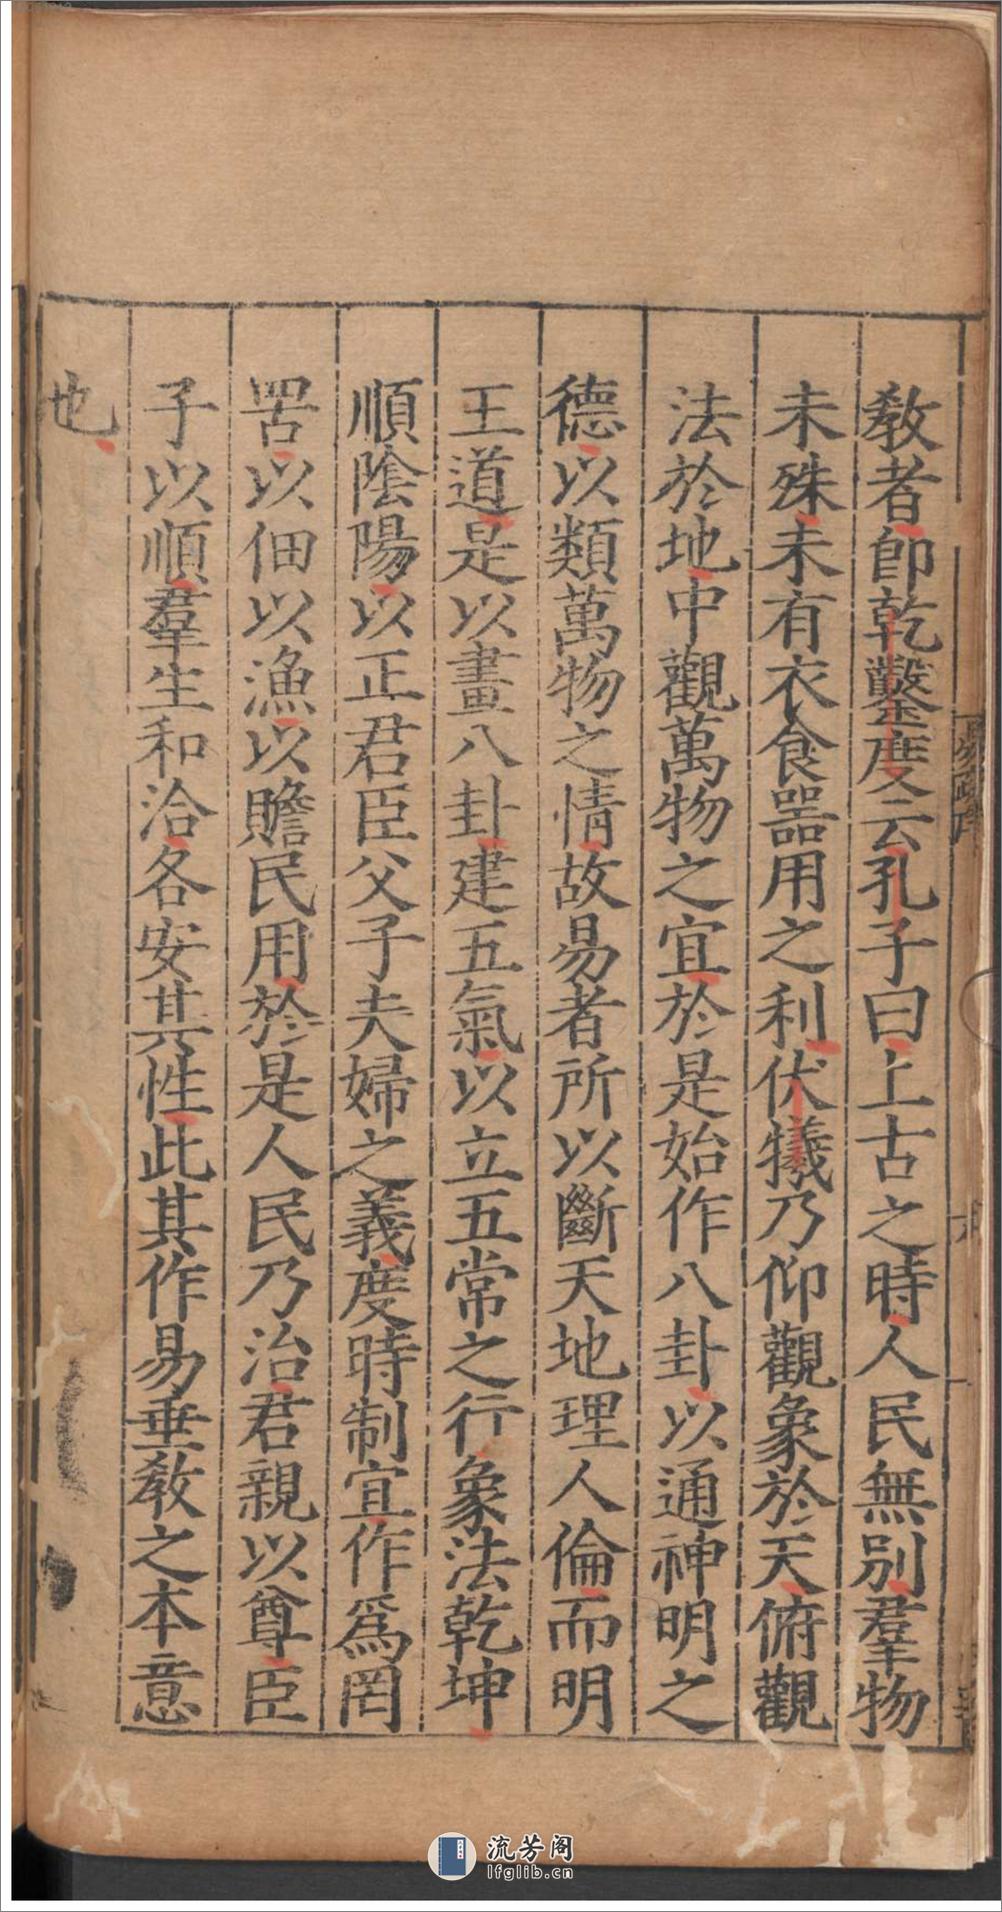 教者即乾鑿度云孔子曰上古之時人民無別羣物
未殊未有衣食器用之利伏犧乃仰觀象於天俯觀
法於地中觀萬物之宜於是始作八卦以通神明之
德以類萬物之情故易者所以斷天地理人倫而明
王道是以畫八卦建五氣以立五常之行象法乾坤
順陰陽以正君臣父子夫婦之義度時制宜作爲罔
罟以佃以漁以贍民用於是人民乃治君親以尊臣
子以順羣生和洽各安其性此其作易垂教之本意
也
易疏序
流芳阁
lfglib.cn